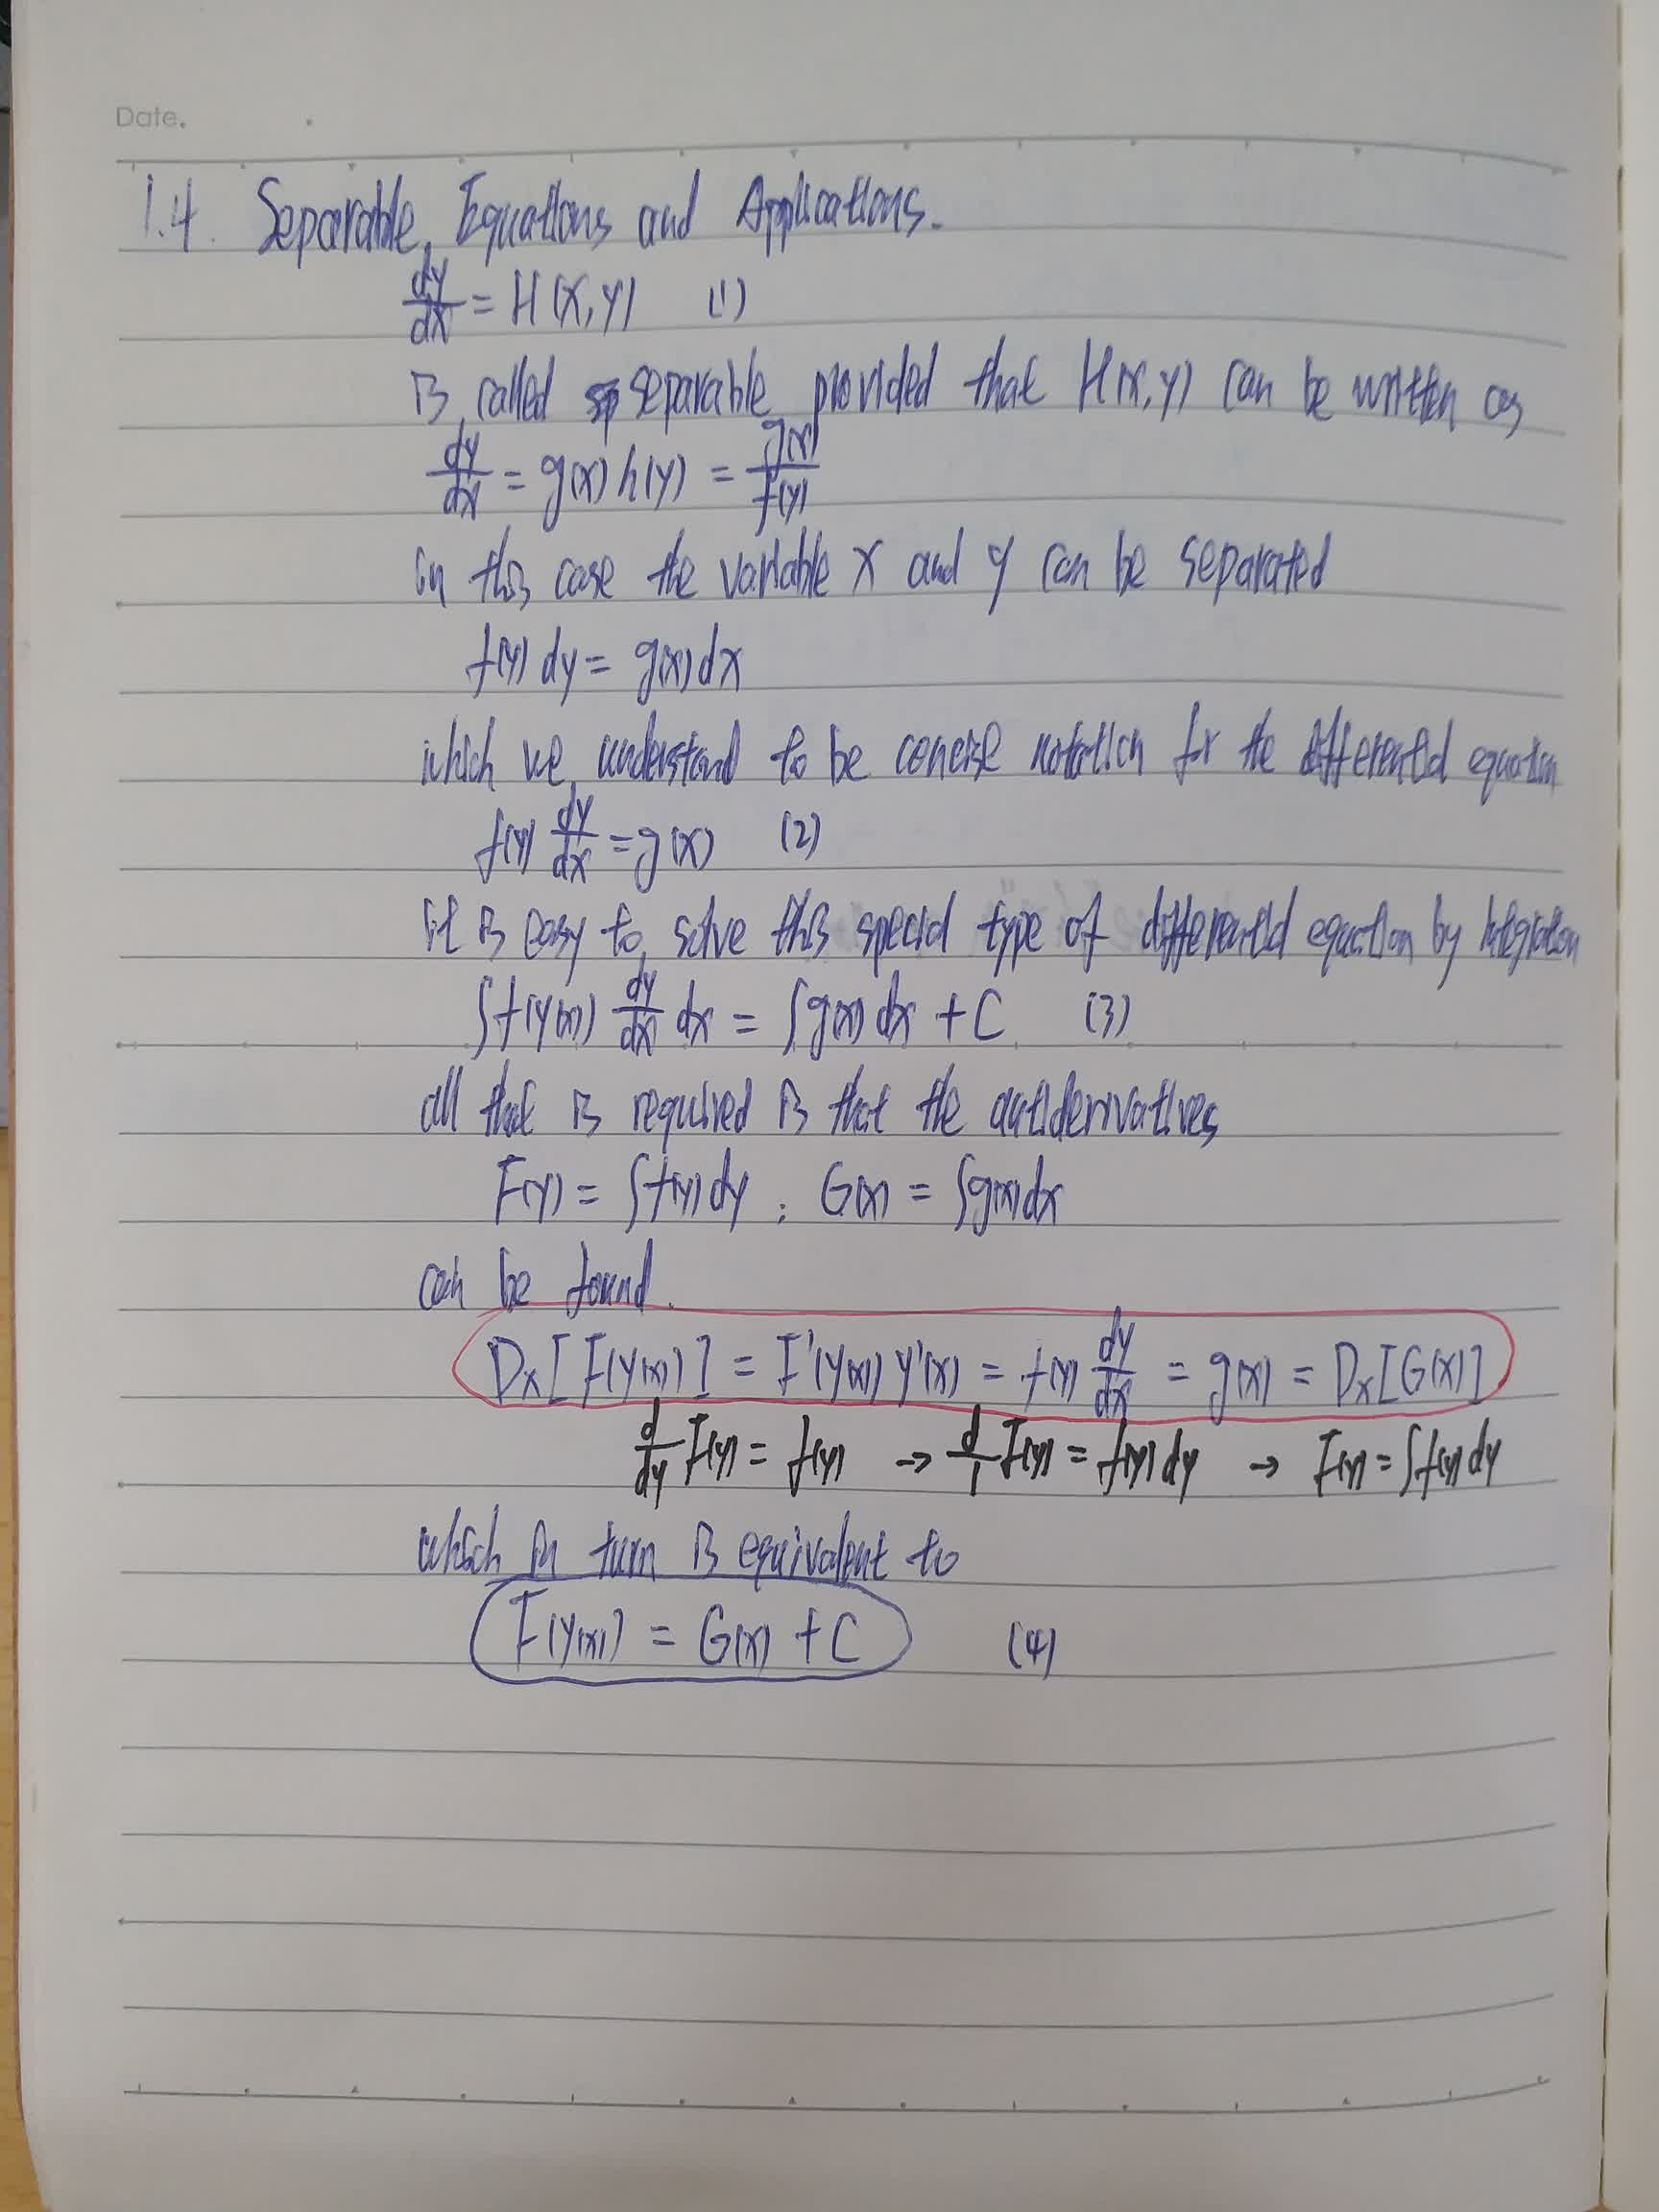 Date.
1.4. Separable Equations and Applications.
dy/dx = H(x,y) (1)
is called separable provided that H(x,y) can be written as
dy/dx = g(x) h(y) = g(x)/f(y)
in this case the variable x and y can be separated
f(y) dy = g(x) dx
which we understand to be concise notation for the differential equation
f(y) dy/dx = g(x) (2)
it is easy to solve this special type of differential equation by integration
∫f(y(x)) dy/dx dx = ∫g(x) dx + C (3)
all that is required is that the antiderivatives
F(y) = ∫f(y) dy ; G(x) = ∫g(x) dx
can be found.
Dx[F(y(x))] = F'(y(x)) y'(x) = f(y) dy/dx = g(x) = Dx[G(x)]
d/dy F(y) = f(y) → d/1 F(y) = f(y) dy → F(y) = ∫f(y) dy
which in turn is equivalent to
F(y(x)) = G(x) + C (4)